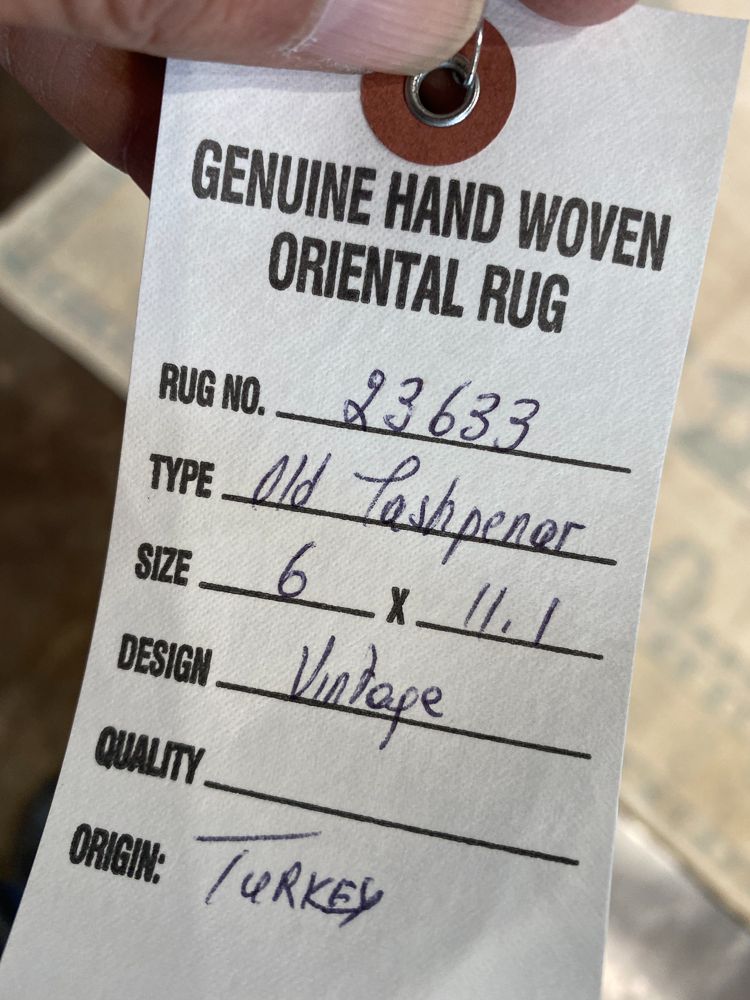 GENUINE HAND WOVEN
ORIENTAL RUG
RUG NO. 23633
TYPE Old Tashpenar
SIZE 6 X 11.1
DESIGN Vintage
QUALITY
ORIGIN: TURKEY